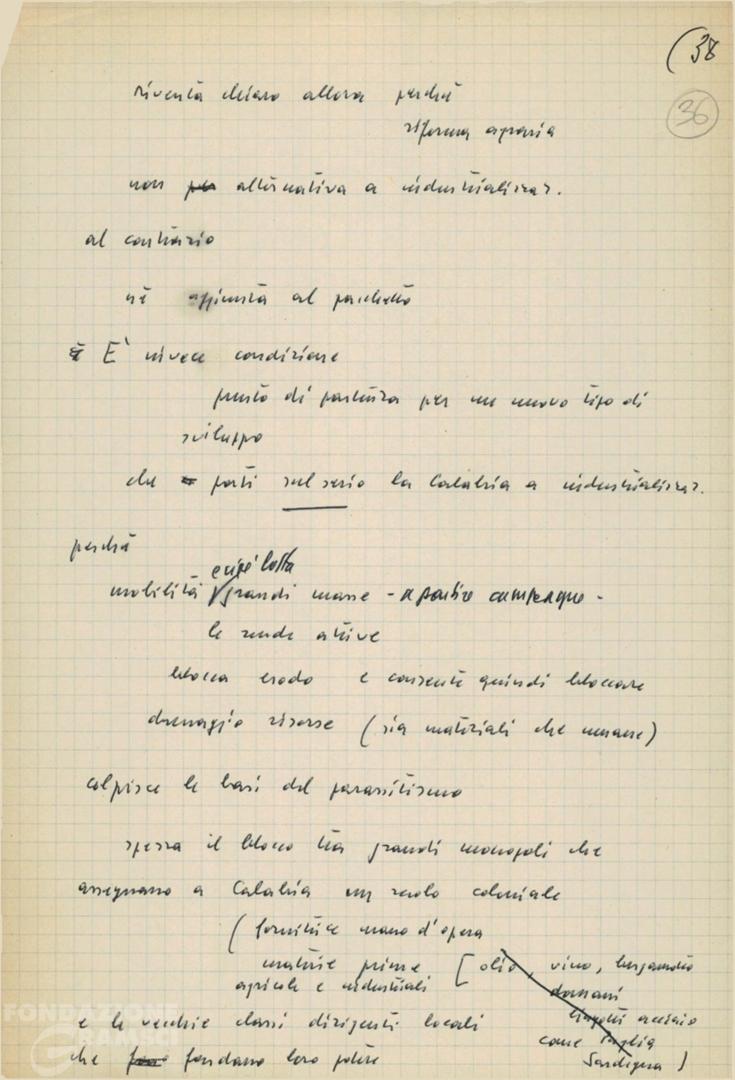 (38
36
diventa chiaro allora perché
riforma agraria
non per alternativa a industrializzaz.
al contrario
né aggiunta al pacchetto
È È invece condizione
punto di partenza per un nuovo tipo di
sviluppo
che porti sul serio la Calabria a industrializzaz.
perché
e unifi lotta
mobilità grandi masse - a partire campagne -
le rende attive
blocca esodo e consente quindi bloccare
drenaggio risorse (sia materiali che umane)
colpisce le basi del parassitismo
spezza il blocco tra grandi monopoli che
assegnano a Calabria un ruolo coloniale
(fornitrice mano d'opera
materie prime [olio, vino, bergamotto
agricole e industriali
domani
lingotti acciaio
e le vecchie classi dirigenti locali
come Puglia
Sardegna)
che fondano loro potere
FONDAZIONE
GRAMSCI